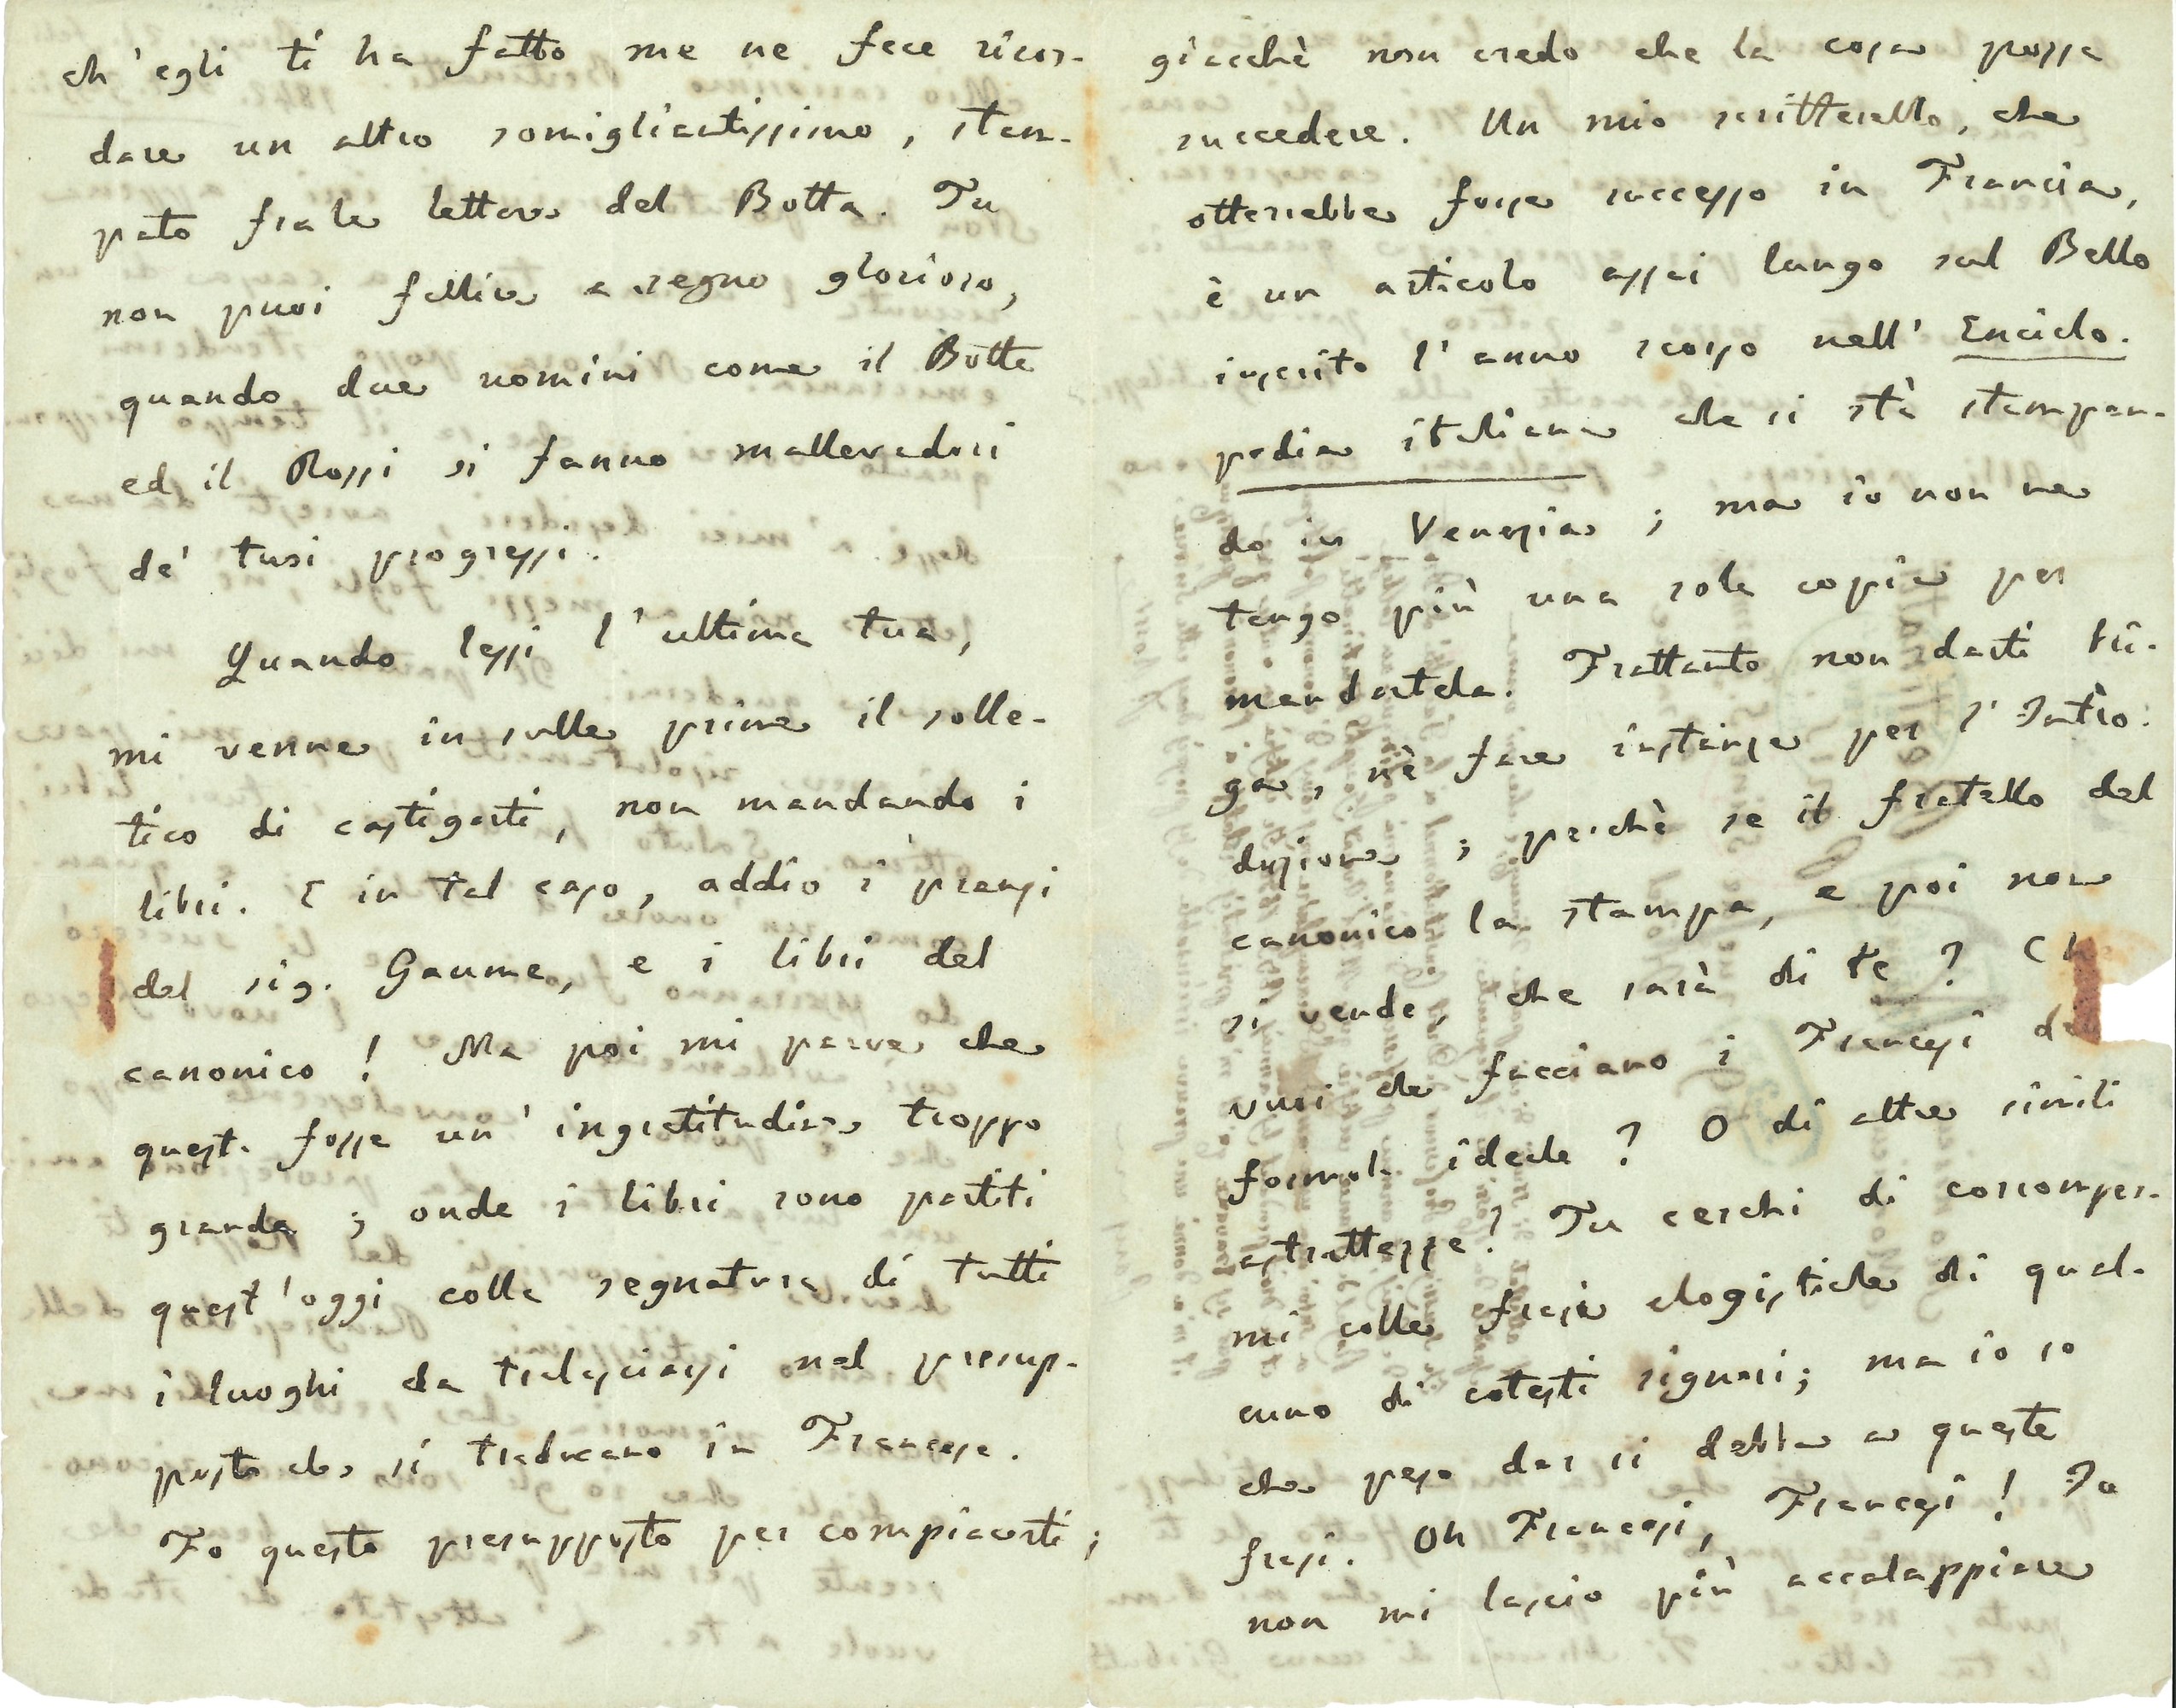 ch'egli ti ha fatto me ne fece ricor-
dare un altro somigliantissimo, stam-
pato fra le lettere del Botta. Tu
non puoi fallire a segno glorioso,
quando due uomini come il Botta
ed il Rossi si fanno mallevadori
de' tuoi progressi.
Quando lessi l'ultima tua,
mi venne in sulle prime il solle-
tico di castigarti, non mandando i
libri. E in tal caso, addio i pranzi
del sig. Gaume, e i libri del
canonico! Ma poi mi parve che
questa fosse un'ingratitudine troppo
grande; onde i libri sono partiti
quest'oggi colla segnatura di tutti
i luoghi da tralasciarsi nel presup-
posto che si traducano in Francese.
Fo questo presupposto per compiacerti;
giacchè non credo che la cosa possa
succedere. Un mio scritterello, che
otterrebbe forse successo in Francia,
è un articolo assai lungo sul Bello
inserito l'anno scorso nell' Enciclo-
pedia italiana che si stà stampan-
do in Venezia; ma io non ne
tengo più una sola copia per
mandartela. Frattanto non darti bri-
ga, nè fare instanze per l'Intro-
duzione; perchè se il fratello del
canonico la stampa, e poi non
si vende, che sarà di te? Ch
vuoi che facciano i Francesi de
formola ideale? O di altre simili
astrattezze? Tu cerchi di corromper-
mi colle frasi elogistiche di qual-
cuno di cotesti signori; ma io so
che peso dar si debba a queste
frasi. Oh Francesi, Francesi! Io
non mi lascio più accalappiare